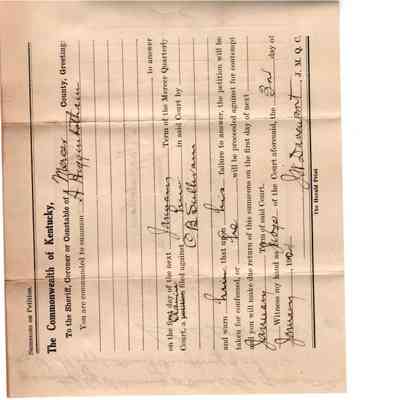 Summons on Petition.
The Commonwealth of Kentucky,
To the Sheriff, Coroner or Constable of Mercer County, Greeting:
You are commanded to summon A Higginbotham
to answer
on the first day of the next January Term of the Mercer Quarterly
Court, a petition filed against him in said Court by
C B Sullivan
and warn him that upon his failure to answer, the petition will be
taken for confessed, or he will be proceeded against for contempt
and you will make due return of this summons on the first day of next
January Term of said Court.
Witness my hand as Judge of the Court aforesaid, the 3rd day of
January, 190
J W Davenport, J. M. Q. C.
The Herald Print